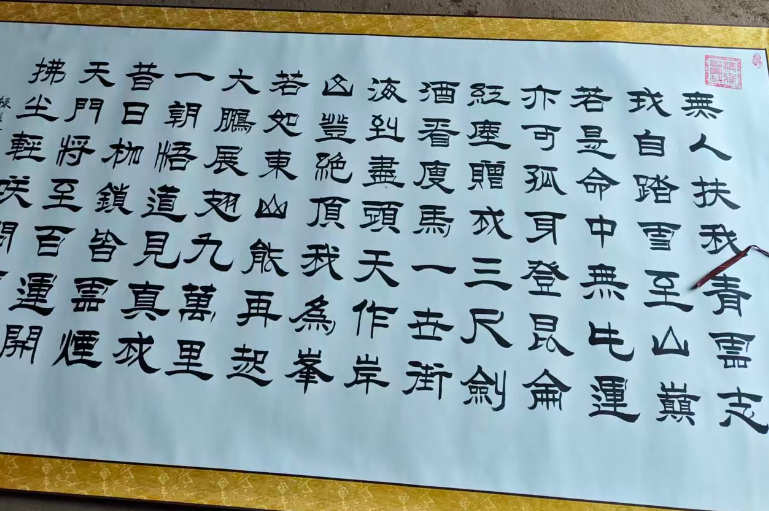 無人扶我青雲志
我自踏雪至山巔
若是命中無此運
亦可孤身登昆侖
紅塵贈我三尺劍
酒看廋馬一世街
海到盡頭天作岸
山登絕頂我為峯
若如東山能再起
大鵬展翅九萬里
一朝悟道見真我
昔日枷鎖皆雲煙
天門將至百運開
拂尘輕咲問